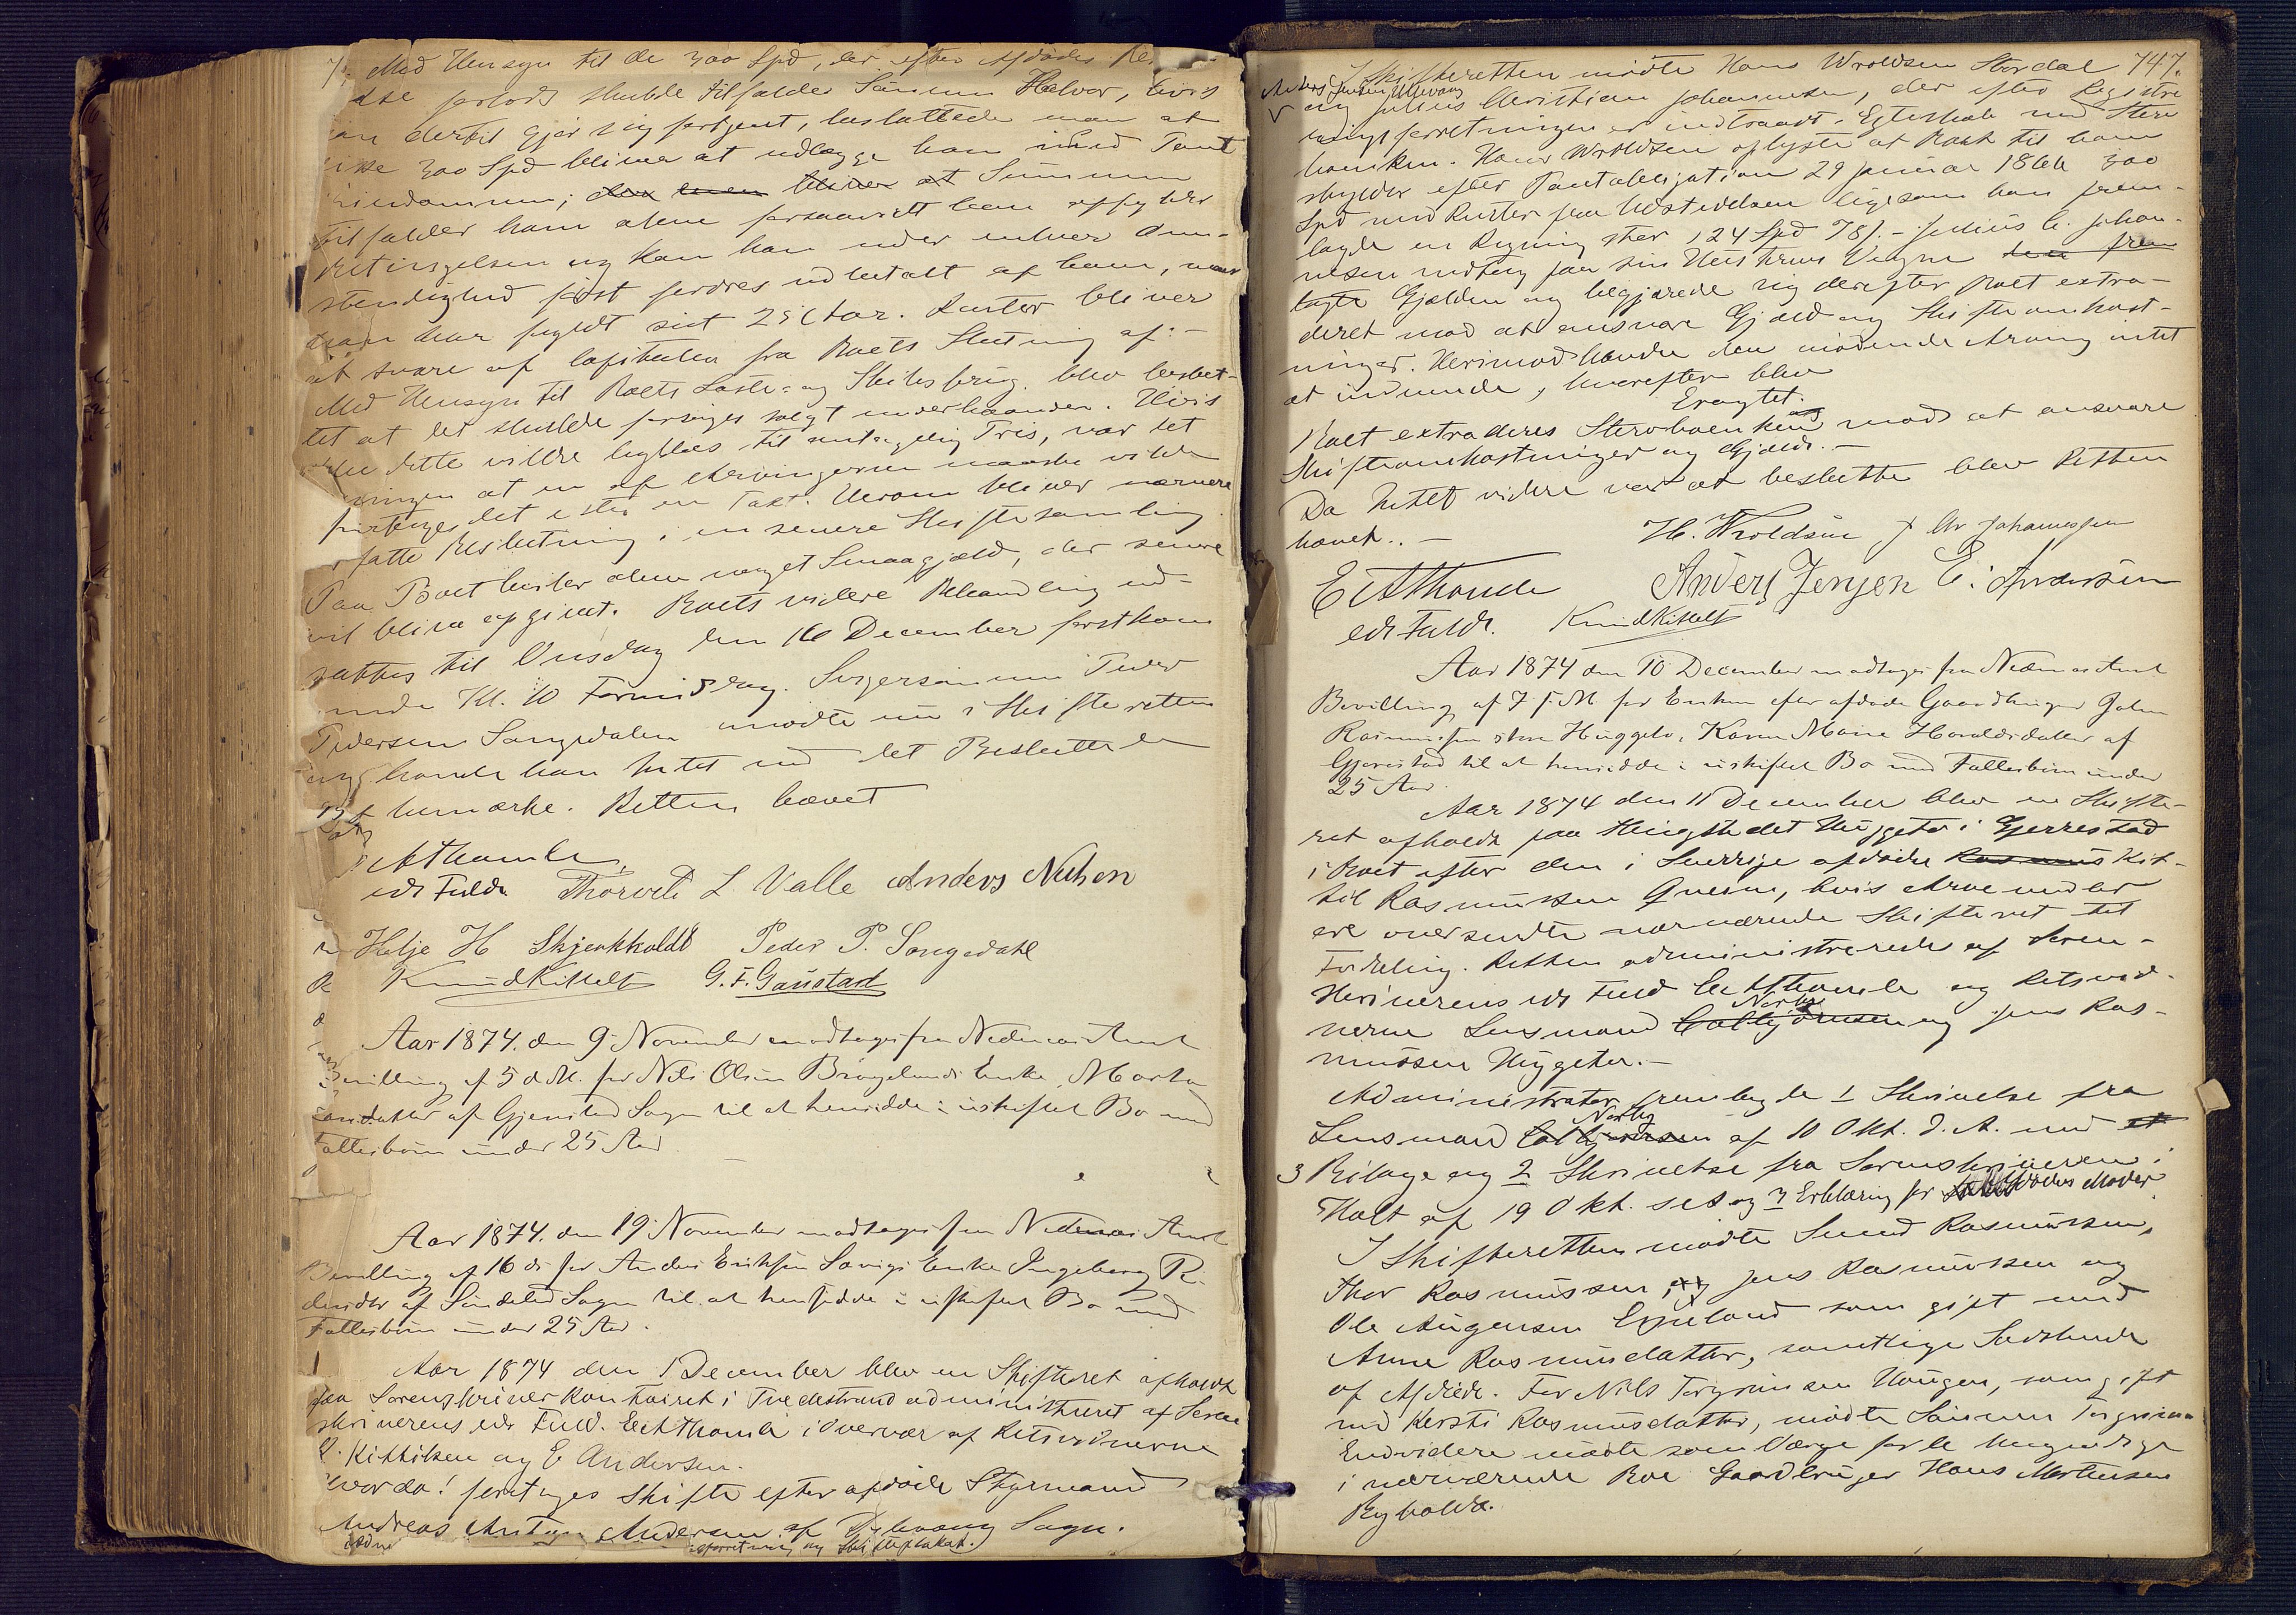 Med Hensyn til de 300 Spd, der efter Afdødes
forlods skulde tilfalde Sønnen Halvor, hvis
han dertil gjør sig fortjent, besluttede man at
disse 300 Spd bliver at udlægge ham med Pant
Eiendommen; den bliver at Summen
tilfalder ham alene forsaavidt han opfylder
Betingelsen og kan han under enhver Om-
stendighed først fordres udbetalt af ham, naar
han har fyldt sit 25 Aar. Renter bliver
at svare af Capitalen fra Boets Slutning af. -
Med Hensyn til Boets Løsøre og Skibsbrug blev beslut-
tet at det skulde forsøges solgt underhaanden. Hvis
dette vilde lykkes til antagelig Pris, var det
Meningen at en af Arvingerne maaske vilde
det efter en Taxt. Herom bliver nærmere
fatte Beslutning i en senere Skiftesamling.
Paa Boet hviler alene noget Smaagjæld, der senere
vil blive opgivet. Boets videre Behandling ud-
sattes til Onsdag den 16 December førstkom
mende Kl. 10 Formiddag. Svigersønnen Peder
Pedersen Songedalen mødte nu i Skifteretten
og havde han Intet ved det Besluttede
at bemærke. Retten hævet
EAThomle
edr Fuldm Thorvel L Valle Anders Nilsen
Helje H Skjerkholdt Peder P. Songedahl
Knud Kittelsen G. F. Gaustad
Aar 1874. den 9. November modtoges fra Nedenæs Amt
Bevilling af 5 d. M. for Nils Olsen Brøgelands Enke, Marta
datter af Gjerrestad Sogn til at hensidde i uskiftet Bo med
Fællesbørn under 25 Aar
Aar 1874. den 19. November modtoges fra Nedenæs Amt
Bevilling af 16 ds for Anders Eriksen Enke Ingeborg
af Søndeled Sogn til at hensidde i uskiftet Bo med
Fællesbørn under 25 Aar.
Aar 1874 den 1 December blev en Skifteret afholdt
paa Sorenskriver Kontoiret i Tvedestrand administreret af Soren
skriverens edr Fuld. EAThomle i Overvær af Retsvidnerne
K. Kittilsen og E Andersen.
Hvorda! foretages Skifte efter afdøde Styrmand
Andreas Anton Andersen af Dybvaag Sogn.
forretning og Skifteplakat.
I Skifteretten mødte Hans Wroldsen Stordal 747.
Anders Jensen
og Julius Christian Johannesen, der efter Registre
ringsforretningen er indtraadt i Egteskab med Sterv
boenken. Hans Wroldsen oplyste at Boet til ham
skylder efter Pantobligation 29 Januar 1866 300
Spd med Renter fra Udstedelsen ligesom han frem-
lagde en Regning stor 124 Spd 78 s. - Julius C. Johan-
nesen vedtog paa sin Hustrues Vegne den frem
lagte Gjælden og begjærede sig derefter Boet extra-
deret mod at ansvare Gjæld og Skifteomkost-
ninger. Herimod havde den mødende Arving intet
at indvende, hvorefter blev
Eragtet.
Boet extraderes Stervboenken mod at ansvare
Skifteomkostninger og Gjæld. -
Da Intet videre var at beslutte blev Retten
hævet. -
H. Wroldsen J Chr Johannessen
EAThomle Anders Jensen E. Andersen
edr Fuldm. Knud Kittelsen
Aar 1874 den 10 December modtoges fra Nedenæs Amt
Bevilling af 7 f. M. for Enken efter afdøde Gaardbruger John
Rasmussen store Huggeto, Karen Marie Haraldsdatter af
Gjerrestad til at hensidde i uskiftet Bo med Fællesbørn under
25 Aar.
Aar 1874 den 11 December blev en Skifte-
ret afholdt paa Thingstedet Huggeto i Gjerrestad
i Boet efter den i Sverrige afdøde Rasmus Kit-
til Rasmussen Qveim, hvis Arvemidler
ere oversendte nærværende Skifteret til
Fordeling. Retten administreredes af Soren-
skriverens edr Fuld EAThomle og Retsvid-
nerne Lensmand Colbjørnsen Nærby og Jens Ras-
mussen Huggeto. -
Administrator fremlagde 1 Skrivelse fra
Lensmand Colbjørnsen Nærby af 10 Okt. d. A. med et
3 Bilage og 2 Skrivelse fra Sorenskriveren i
Holt af 19 Okt. s A og 3 Erklæring for Afdødes Moder.
I Skifteretten mødte Svend Rasmussen,
Thor Rasmussen, og Jens Rasmussen og
Ole Augensen Espeland som gift med
Anne Rasmusdatter, samtlige Sødskende
af Afdøde. For Nils Torgrimsen Haugen, som gift
med Kersti Rasmusdatter, mødte Sønnen Torgrim
Endvidere mødte som Værge for de Umyndige
i nærværende Boe Gaardbruger Hans Mortensen
Ryholdt.